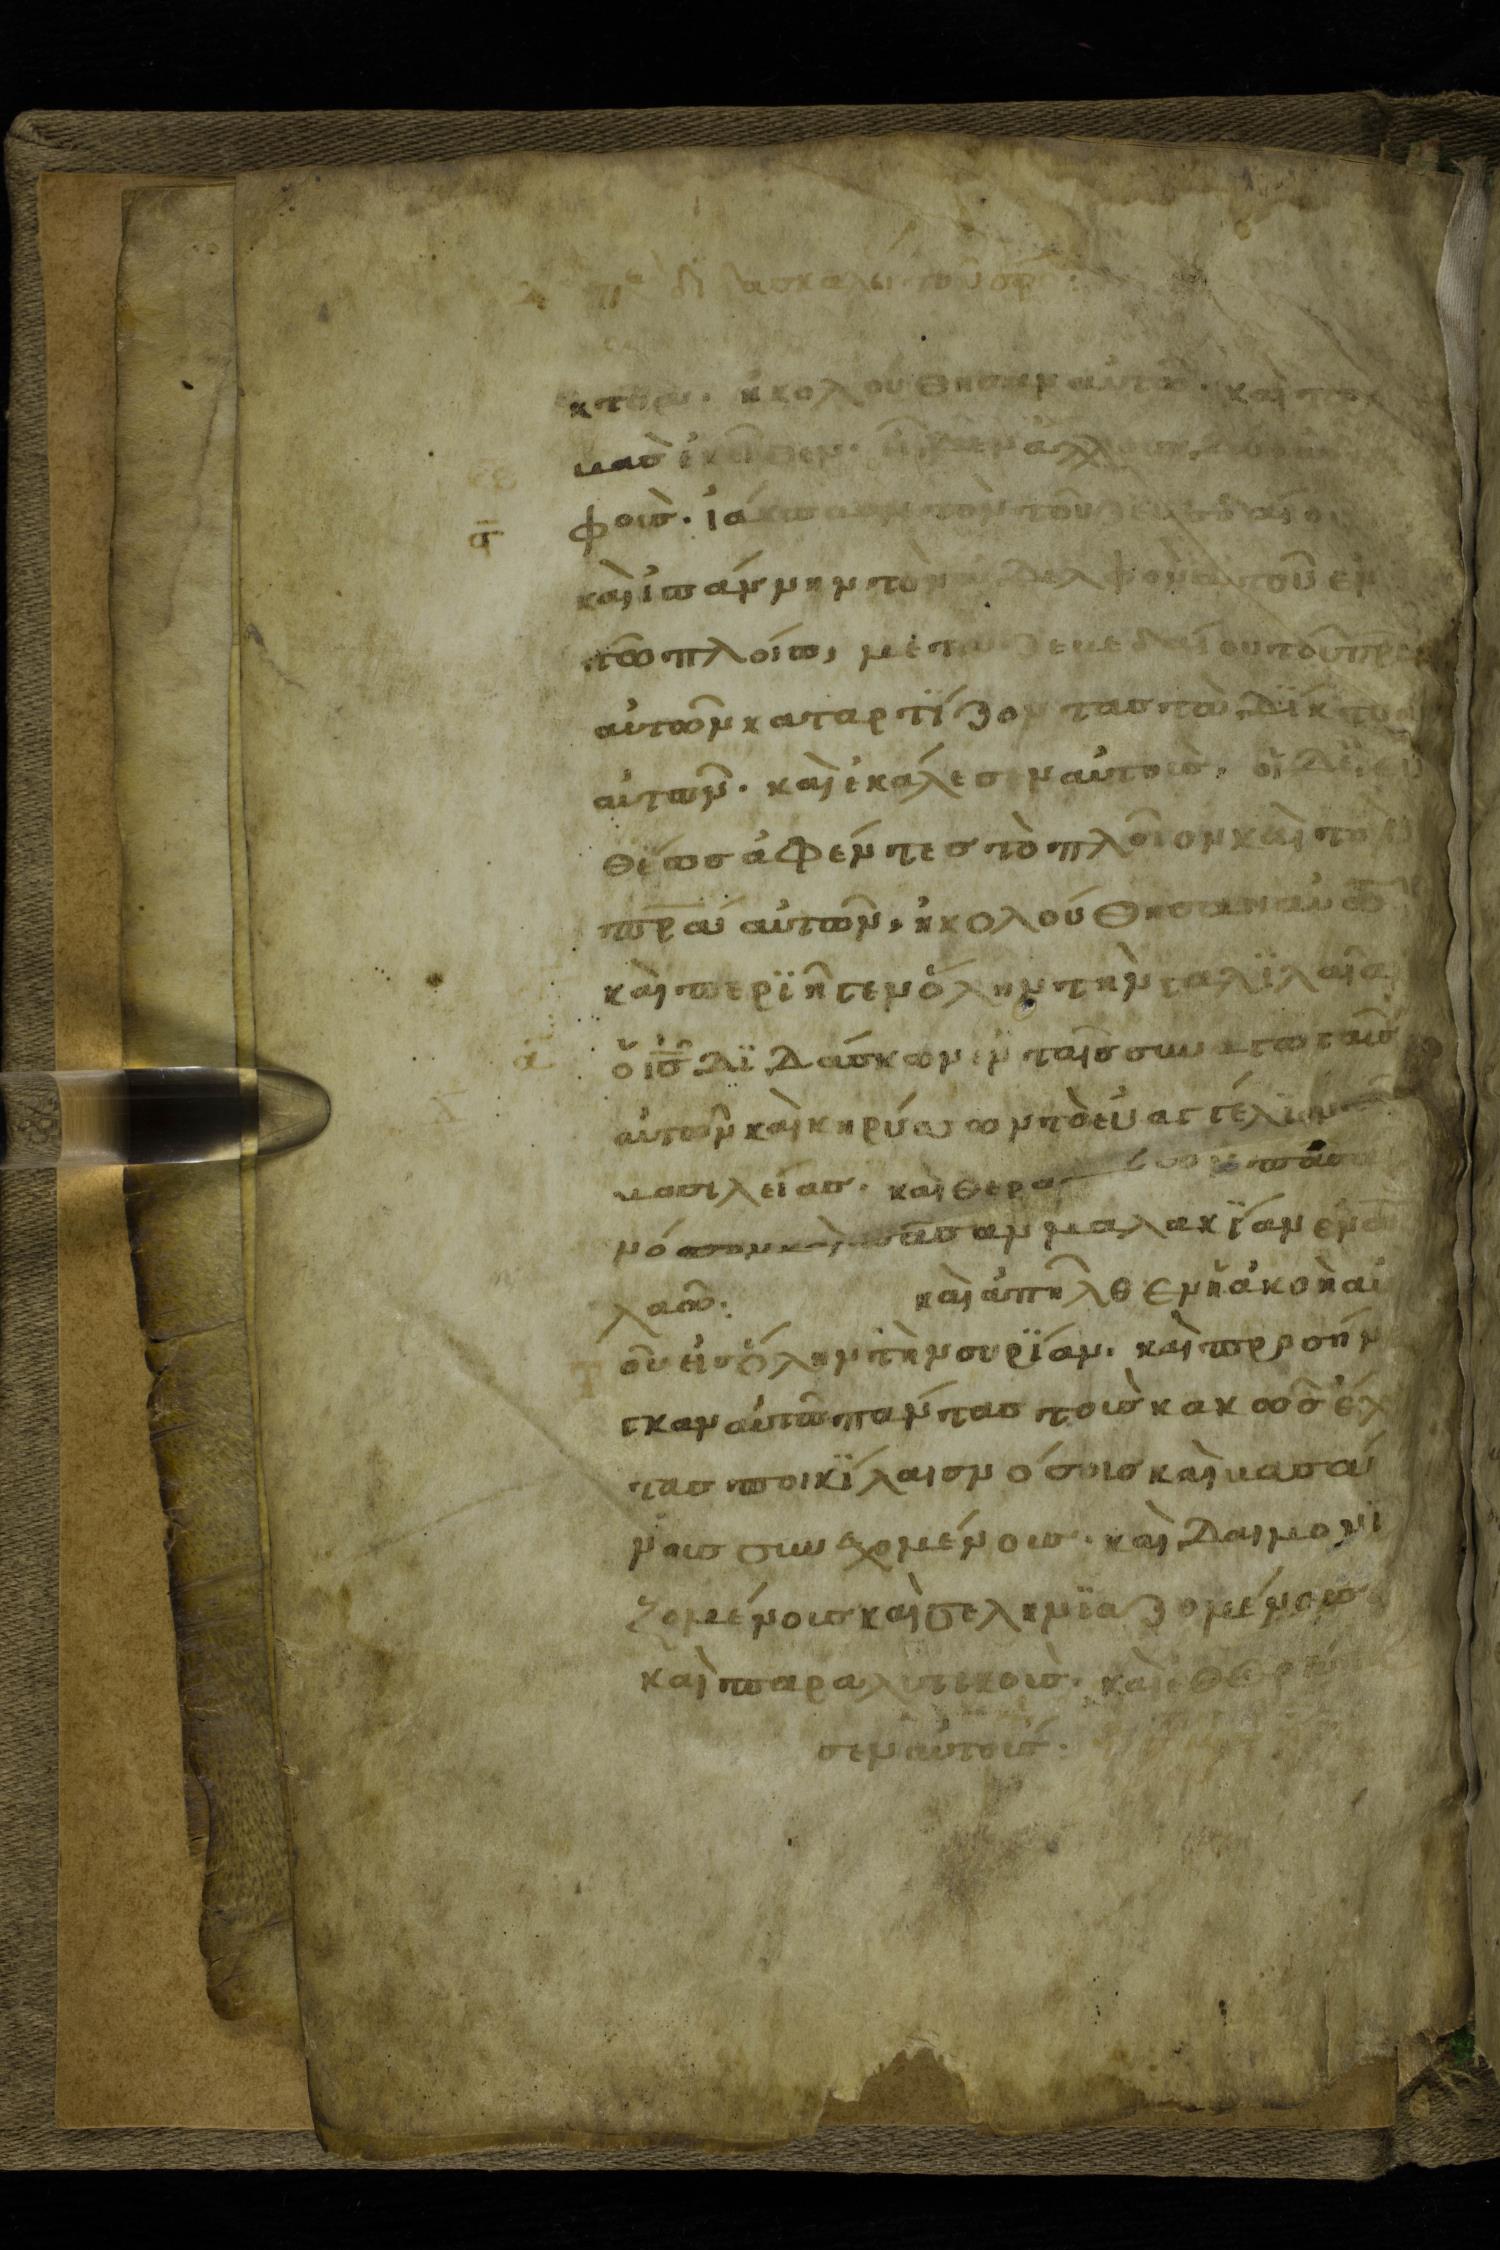 διδασκαλεί τοῦ σρσ
κτυα. ἠκολούθησαν αὐτῶ. καὶ προ
βὰσ ἐκεῖθεν. εἶδεν ἄλλουσ δύο
φοὺσ. ἰάκωβον τὸν τοῦ ζεβεδαίου
καὶ ἰωάννην τὸν ἀδελφὸν αὐτοῦ ἐν
τῶ πλοίω, μετὰ ζεβεδαίου τοῦ πρσ
αὐτῶν καταρτϊζοντασ τὰ δΐκτυα
αὐτῶν. καὶ ἐκάλεσεν αὐτούσ. οἱ δὲ εὐ
θέωσ ἀφέντεσ τὸ πλοῖον καὶ τὸν
πρα αὐτῶν, ἠκολούθησαν αὐτῶ
καὶ περιῆγεν ὅλην τὴν γαλϊλαία
ὁ ισ δϊδάσκων ἐν ταῖσ συναγωγαῖσ
αὐτῶν καὶ κηρύσσων τὸ εὐαγγέλιον τῆσ
βασιλείασ. καὶ θεραπεύων πᾶσαν
νόσον καὶ πᾶσαν μαλακΐαν ἐν τῶ
λαῶ. καὶ ἀπῆλθεν ἡ ἀκοὴ αὐ
τοῦ εἰσ ὅλην τὴν συρΐαν. καὶ προσήν
εγκαν αὐτῶ πάντασ τοὺσ κακῶσ ἔχ
τασ ποικΐλαισ νόσοισ καὶ βασά
νοισ συνεχομένουσ. καὶ δαιμονϊ
ζομένουσ καὶ σεληνϊαζομένουσ
καὶ παραλυτικοὺσ. καὶ ἐθεράπευ
σεν αὐτούσ.